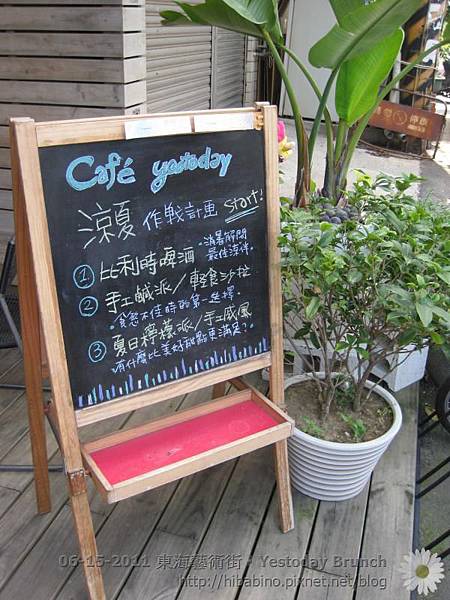 Café yestoday
涼夏 作戰計畫 start!
① 比利時啤酒 ·消暑解悶
最佳涼伴·
② 手工鹹派/輕食沙拉
·食慾不佳時的第一選擇·
③ 夏日檸檬派/手工戚風
·有什麼比美好甜點更滿足?·
06-15-2011 東海藝術街 · Yestoday Brunch
http://hibabino.pixnet.net/blog